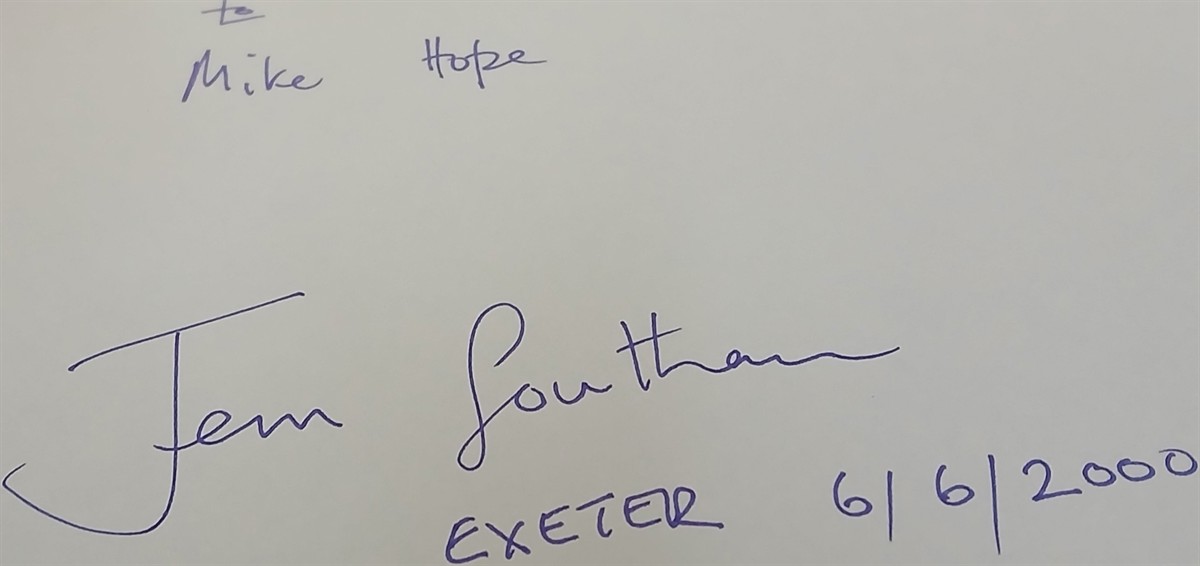 to
Mike Hope
Jem Southam
EXETER 6/6/2000